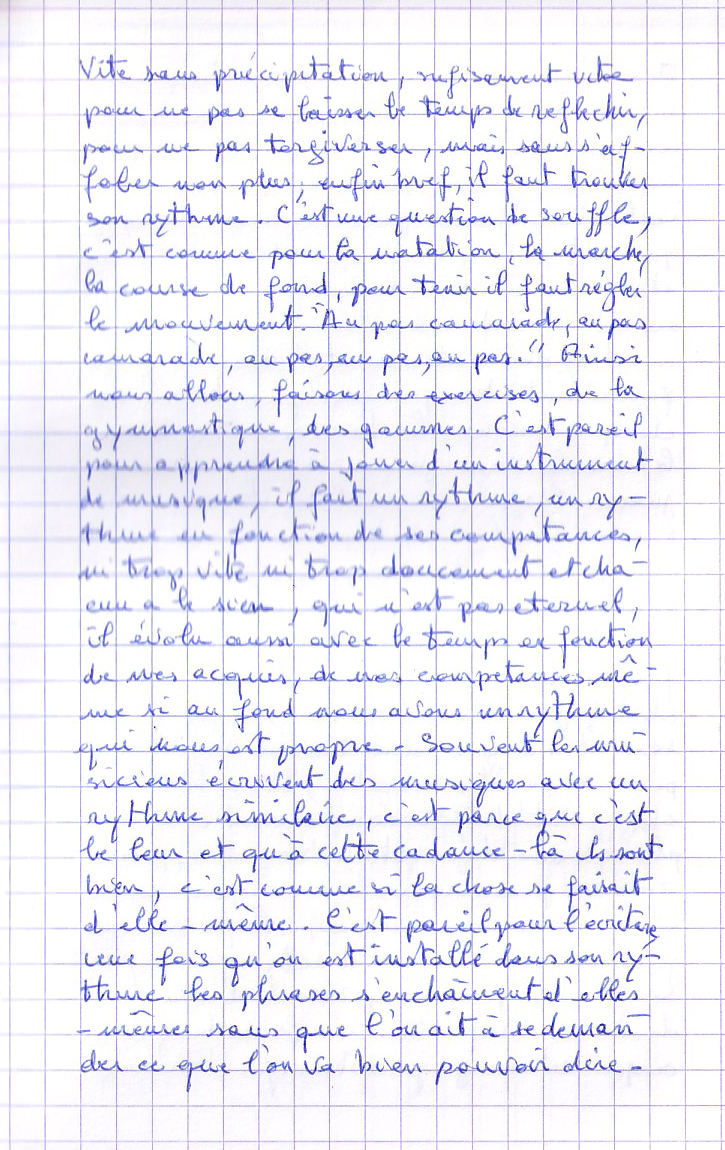 Vite sans précipitation, sufisement vite
pour ne pas se laisser le temps de reflechir,
pour ne pas tergiverser, mais sans s'af-
foler non plus, enfin bref, il faut trouver
son rythme. C'est une question de souffle,
c'est comme pour la natation, la marche,
la course de fond, pour tenir il faut régler
le mouvement. "Au pas camarade, au pas
camarade, au pas, au pas, au pas." Ainsi
nous allons, faisons des exercises, de la
gymnastique, des gammes. C'est pareil
pour apprendre à jouer d'un instrument
de musique, il faut un rythme, un ry-
thme en fonction de ses competances,
ni trop vite ni trop doucement et cha-
cun a le sien, qui n'est pas eternel,
il évolu aussi avec le temps en fonction
de nos acquis, de nos competances mê-
me si au fond nous avons un rythme
qui nous est propre - Souvent les mu
siciens écrivent des musiques avec un
rythme similaire, c'est parce que c'est
le leur et qu'à cette cadance-là ils sont
bien, c'est comme si la chose se faisait
d'elle-même. C'est pareil pour l'écriture
une fois qu'on est installé dans son ry-
thme les phrases s'enchaînent d'elles
-mêmes sans que l'on ait à se deman
der ce que l'on va bien pouvoir dire -